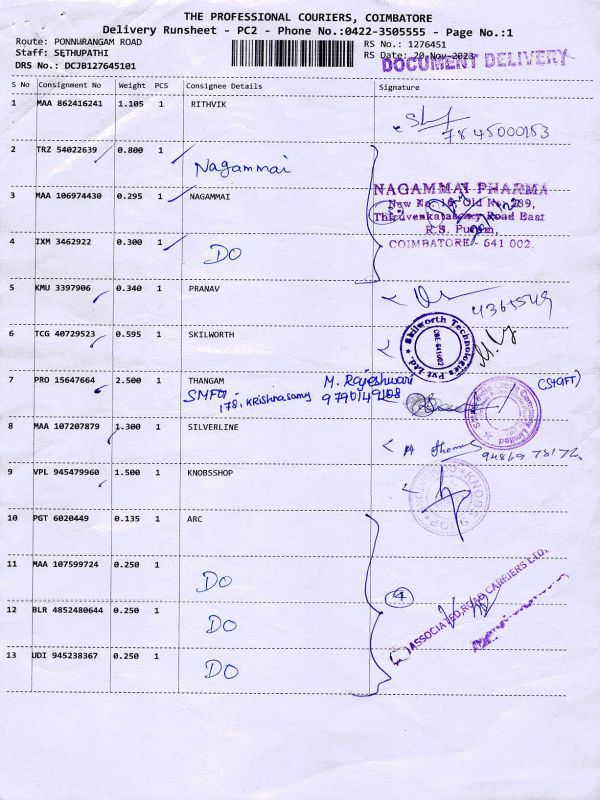 THE PROFESSIONAL COURIERS, COIMBATORE
Delivery Runsheet - PC2 - Phone No.:0422-3505555 - Page No.:1
Route: PONNURANGAM ROAD
Staff: SETHUPATHI
DRS No.: DCJB127645101
RS No.: 1276451
RS Date: 20-Nov-2023
DOCUMENT DELIVERY
S No Consignment No Weight PCS Consignee Details Signature
1 MAA 862416241 1.105 1 RITHVIK
7845000153
2 TRZ 54022639 0.800 1 Nagammai
3 MAA 106974430 0.295 1 NAGAMMAI
NAGAMMAI PHARMA
New No. 19, Old No. 239,
Thiruvenkatasamy Road East
R.S. Puram,
COIMBATORE - 641 002.
4 IXM 3462922 0.300 1 DO
5 KMU 3397906 0.340 1 PRANAV
4365549
6 TCG 40729523 0.595 1 SKILWORTH
Skilworth Technologies Pvt Ltd.
CBE-641002
7 PRO 15647664 2.500 1 THANGAM
SMFG M. Rajeshwari
178, Krishnasamy 9790149108
(STAFF)
Company Limited
8 MAA 107207879 1.300 1 SILVERLINE
Thomas
9 VPL 945479960 1.500 1 KNOBSSHOP
10 PGT 6020449 0.135 1 ARC
11 MAA 107599724 0.250 1 DO
12 BLR 4852480644 0.250 1 DO
4
ASSOCIATED ROAD CARRIERS LTD.
13 UDI 945238367 0.250 1 DO